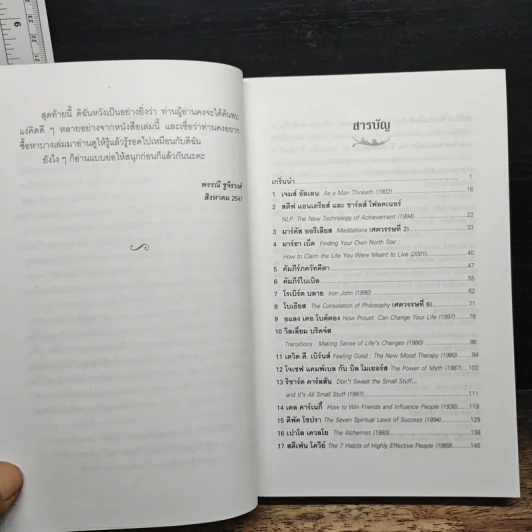 สุดท้ายนี้ ดิฉันหวังเป็นอย่างยิ่งว่า ท่านผู้อ่านคงจะได้ค้นพบ
แง่คิดดี ๆ หลายอย่างจากหนังสือเล่มนี้ และเชื่อว่าท่านคงอยาก
ซื้อหาบางเล่มมาอ่านดูให้รู้แล้วรู้รอดไปเหมือนกับดิฉัน
ยังไง ๆ ก็อ่านแบบย่อให้สนุกก่อนก็แล้วกันนะคะ
พรรณี ชูจิรวงศ์
สิงหาคม 254
สารบัญ
เกริ่นนำ 1
1 เจมส์ อัลเลน As a Man Thinketh (1902) 16
2 สตีฟ แอนเดรียส์ และ ชาร์ลส์ โฟลคเนอร์
NLP: The New Technology of Achievement (1994) 22
3 มาร์คัส ออรีเลียส Meditations (ศตวรรษที่ 2) 33
4 มาร์ธา เบ็ค Finding Your Own North Star :
How to Claim the Life You Were Meant to Live (2001) 40
5 คัมภีร์ภควัทคีตา 47
6 คัมภีร์ไบเบิล 55
7 โรเบิร์ต บลาย Iron John (1990) 62
8 โบเอียส The Consolation of Philosophy (ศตวรรษที่ 6) 71
9 อแลง เดอ โบต์ตอง How Proust Can Change Your Life (1997) 78
10 วิลเลี่ยม บริดจ์ส
Transitions : Making Sense of Life's Changes (1980) 86
11 เดวิด ดี. เบิร์นส์ Feeling Good : The New Mood Therapy (1980) 94
12 โจเซฟ แคมพ์เบล กับ บิล โมเยอร์ส The Power of Myth (1987) 103
13 ริชาร์ด คาร์ลสัน Don't Sweat the Small Stuff...
and It's All Small Stuff (1997) 111
14 เดล คาร์เนกี้ How to Win Friends and Influence People (1936) 119
15 ดีพัค โชปรา The Seven Spiritual Laws of Success (1994) 129
16 เปาโล เควลโย The Alchemist (1993) 138
17 สตีเฟ่น โควีย์ The 7 Habits of Highly Effective People (1989) 145